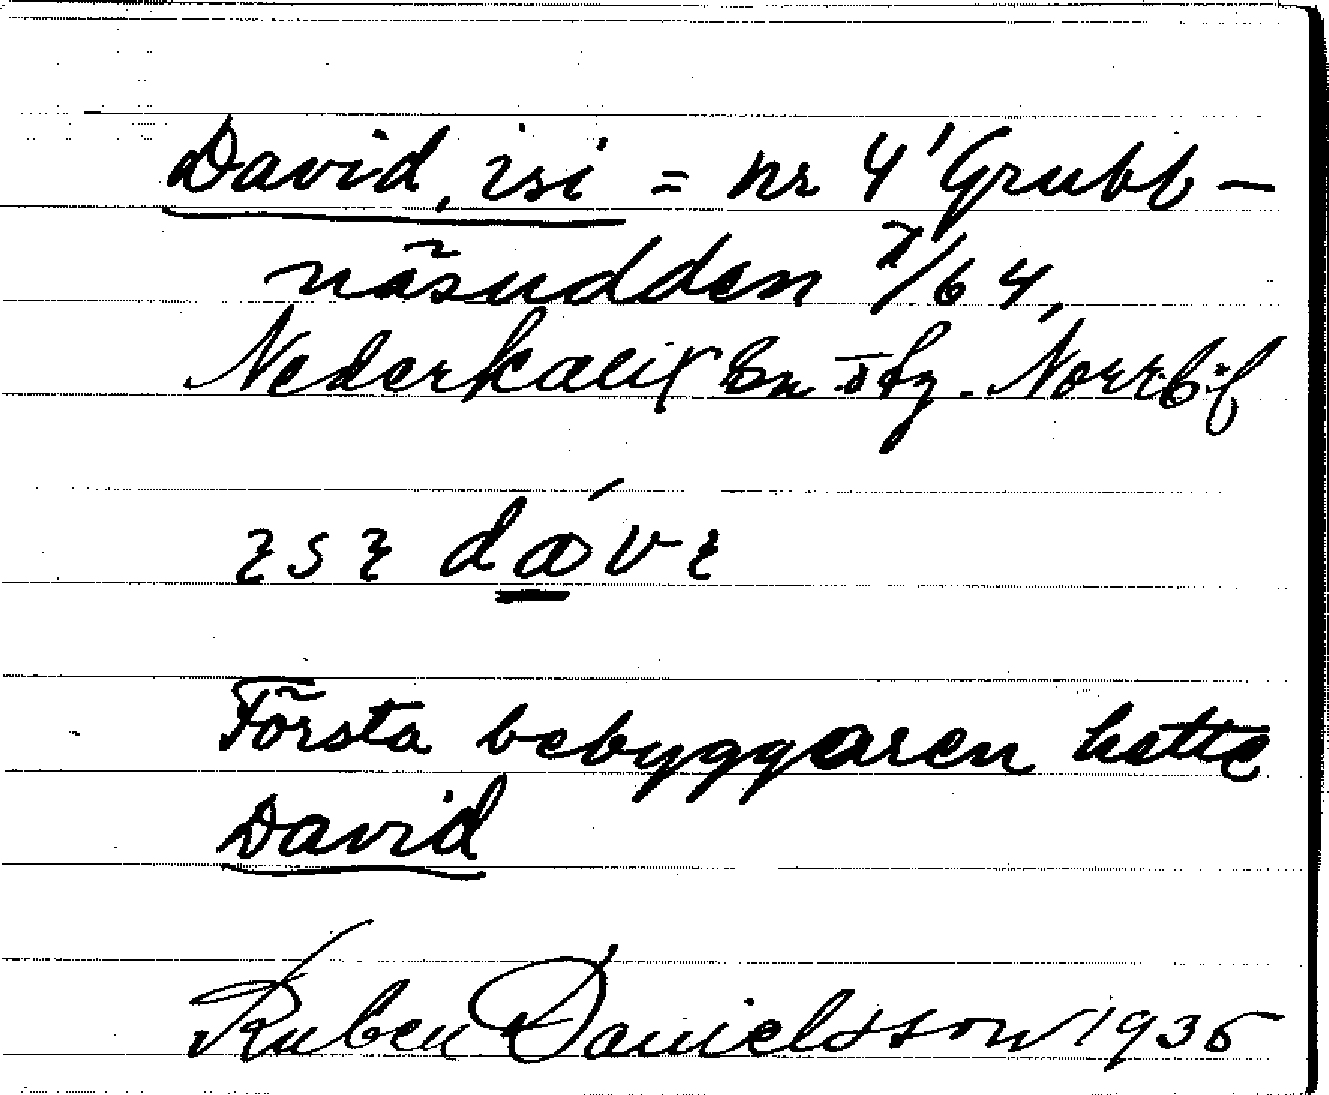 David, isi = nr 4¹ Grubb-
näsudden ¹/64,
Nederkalix sn Norrb. l
ɩsɩ dávɩ
Första bebyggaren hette
David
Ruben Danielsson 1935